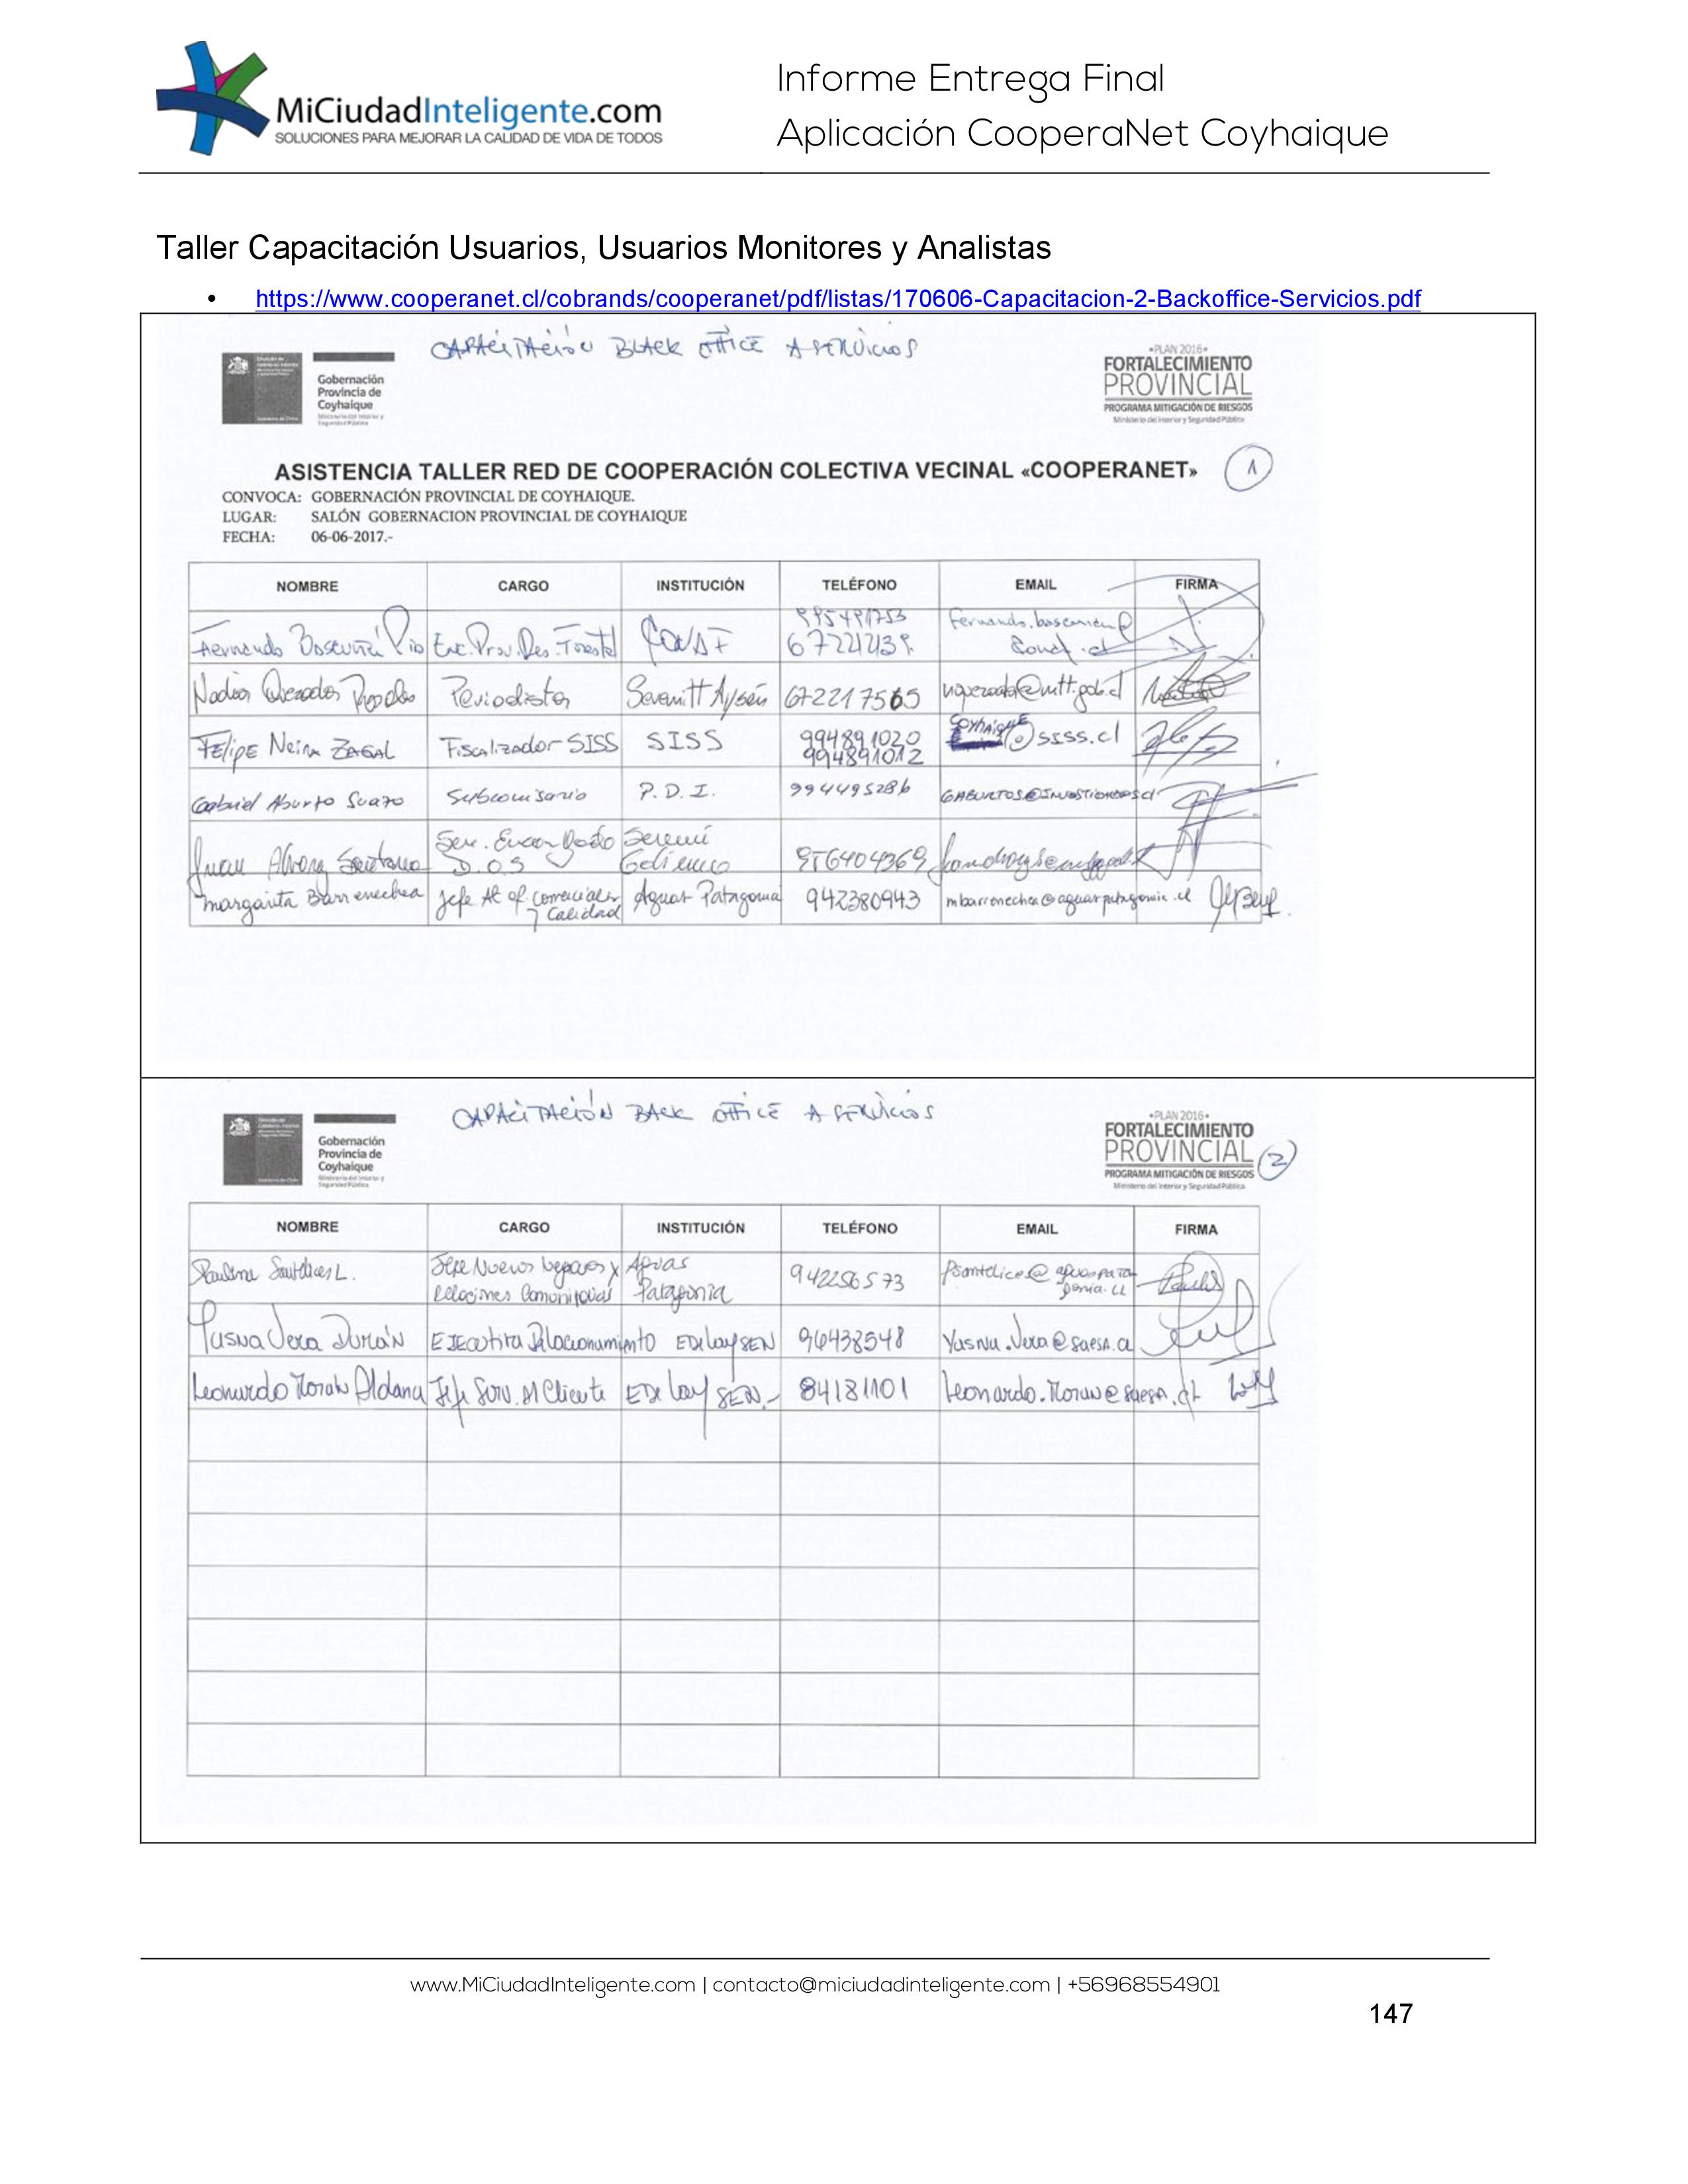 MiCiudadInteligente.com
SOLUCIONES PARA MEJORAR LA CALIDAD DE VIDA DE TODOS
Informe Entrega Final
Aplicación CooperaNet Coyhaique
Taller Capacitación Usuarios, Usuarios Monitores y Analistas
• https://www.cooperanet.cl/cobrands/cooperanet/pdf/listas/170606-Capacitacion-2-Backoffice-Servicios.pdf
CAPACITACIÓN BLACK OFFICE A SERVICIOS
Gobernación
Provincia de
Coyhaique
Ministerio del Interior y
Seguridad Pública
•PLAN 2016•
FORTALECIMIENTO
PROVINCIAL
PROGRAMA MITIGACIÓN DE RIESGOS
Ministerio del Interior y Seguridad Pública
ASISTENCIA TALLER RED DE COOPERACIÓN COLECTIVA VECINAL «COOPERANET»
1
CONVOCA: GOBERNACIÓN PROVINCIAL DE COYHAIQUE.
LUGAR: SALÓN GOBERNACION PROVINCIAL DE COYHAIQUE
FECHA: 06-06-2017.-
NOMBRE CARGO INSTITUCIÓN TELÉFONO EMAIL FIRMA
Fernando Enc. Prov. Des. Forestal CONAF
Nadia Periodista 672217565
Felipe Neira ZAGAL Fiscalizador SISS SISS 994891020 994891012 Coyhaique@siss.cl
Gabriel Aburto Suazo Subcomisario P.D.I. 994495286
Juan D.O.S Seremi Gobierno 976404369
margarita Barrenechea Jefe At of. comerciales y Calidad Aguas Patagonia 942380943 mbarrenechea@aguaspatagonia.cl
CAPACITACIÓN BACK OFFICE A SERVICIOS
Gobernación
Provincia de
Coyhaique
Ministerio del Interior y
Seguridad Pública
•PLAN 2016•
FORTALECIMIENTO
PROVINCIAL
PROGRAMA MITIGACIÓN DE RIESGOS
Ministerio del Interior y Seguridad Pública
2
NOMBRE CARGO INSTITUCIÓN TELÉFONO EMAIL FIRMA
Paulina Santelices L. Jefe Nuevos Negocios y Relaciones Comunitarias Aguas Patagonia 942256573 Psantelices@aguaspatagonia.cl
Yasna Vera Durán EJECutiva Relacionamiento EDElaySEN 96438548 Yasna.Vera@saesa.cl
Leonardo Moran Aldana Jefe Serv. Al Cliente EDElaySEN.- 84181101 Leonardo.Moran@saesa.cl
www.MiCiudadInteligente.com | contacto@miciudadinteligente.com | +56968554901
147